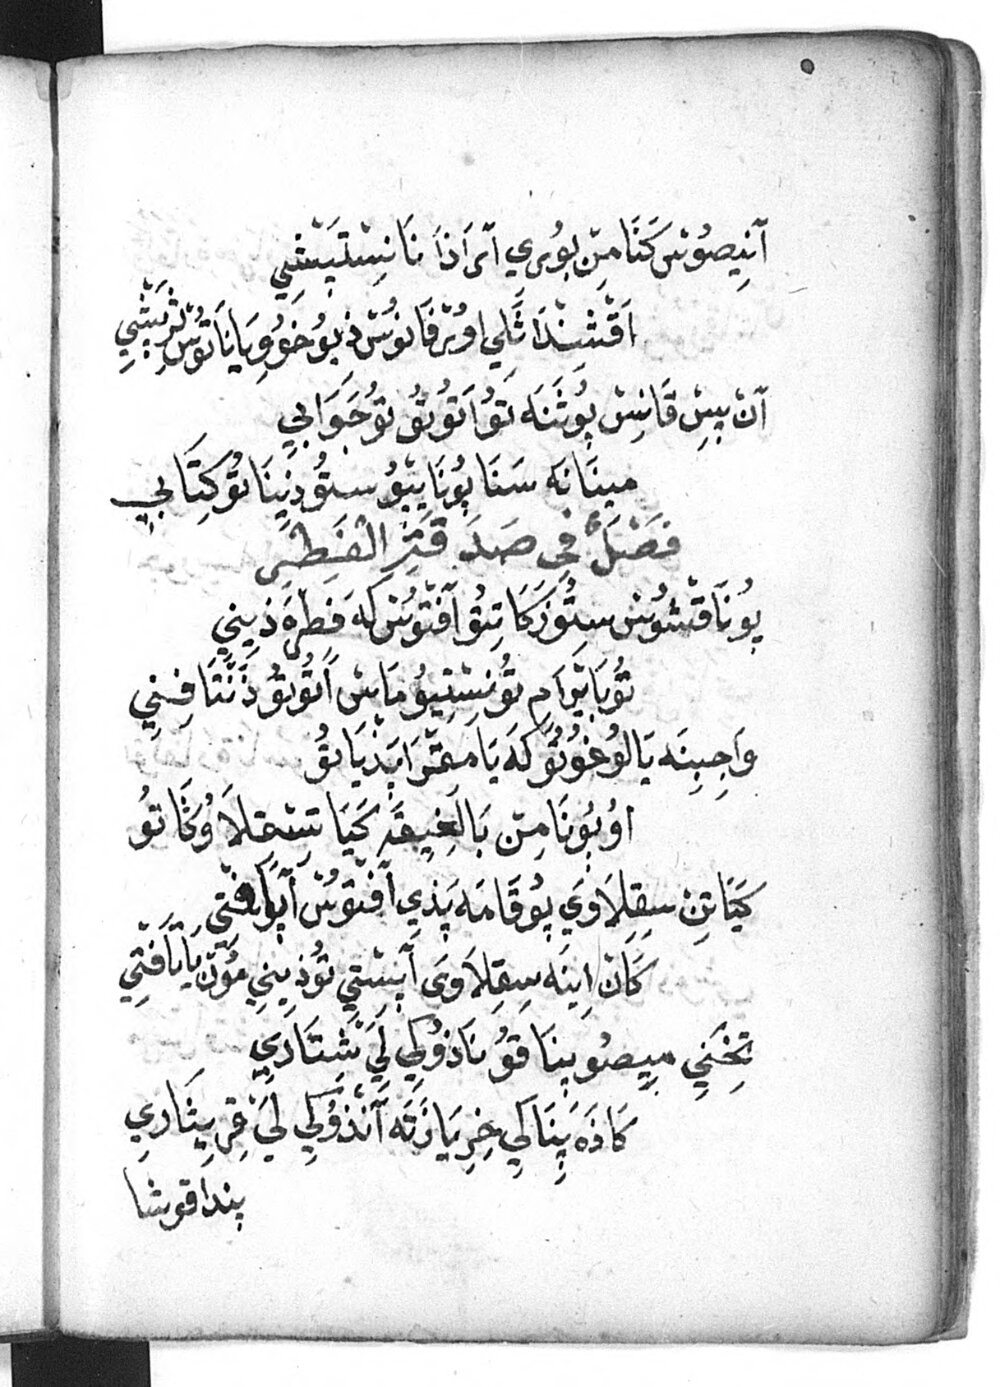 آنِيصُوسْ كَنَا مِنْ بُورِي آيرَاذَا نَا نِسْتَپْسِي
اَقْسْنْدَا ثَلِي اوُرْفَانُوسْ ذِپُوخُووِيَا نَاتُوسْ ثْرَپْسِي
آنْ پِسِ قَانِسْ پُوثَنَه تُو اَتُوتُو تُو جَوَابِي
مِينَا نَه سَنَا پُونَا يِپُو سِتُوذِينِنَا تُو كِتَابِي
فَصْلٌ فِي صَدَقَةِ الْفِطْرِ
پُونَاقْسُوسْ سِتُوزَكَاتِتُو آفْتُوسْ كَه فِطْرَه ذِينِي
تُو بَايْرَامِ تُونِسْتِيُو مَاسْ اَتُوتُو ذَنْتَا فِينِي
وَاجِبِنَه يَالُوغُوتُو كَه يَا مِقْرَا پَذْيَاتُو
اوُپُونَا مِنْ بَالِغِيقَه كَيَا تِسْقِلَاوُكَاتُو
كَيَا تِنْ سِقِلَاوَي پُوقَامَه پَذِي آفْتُوسْ آپَكَافْتِي
كَانْ اِينَه سِقِلَاوَي آپِسْتِي تُوذِينِي مُونْ يَايَافْتِي
تِخْنِي مِيصُو پِينَاقُو نَاذُوكِي لَيْ سِتَارِي
كَاذَه پِينَاكِي خِرِيَازَتَه آنْذُوكِي لَيْ قِرِيثَارِي
پنداقوشا